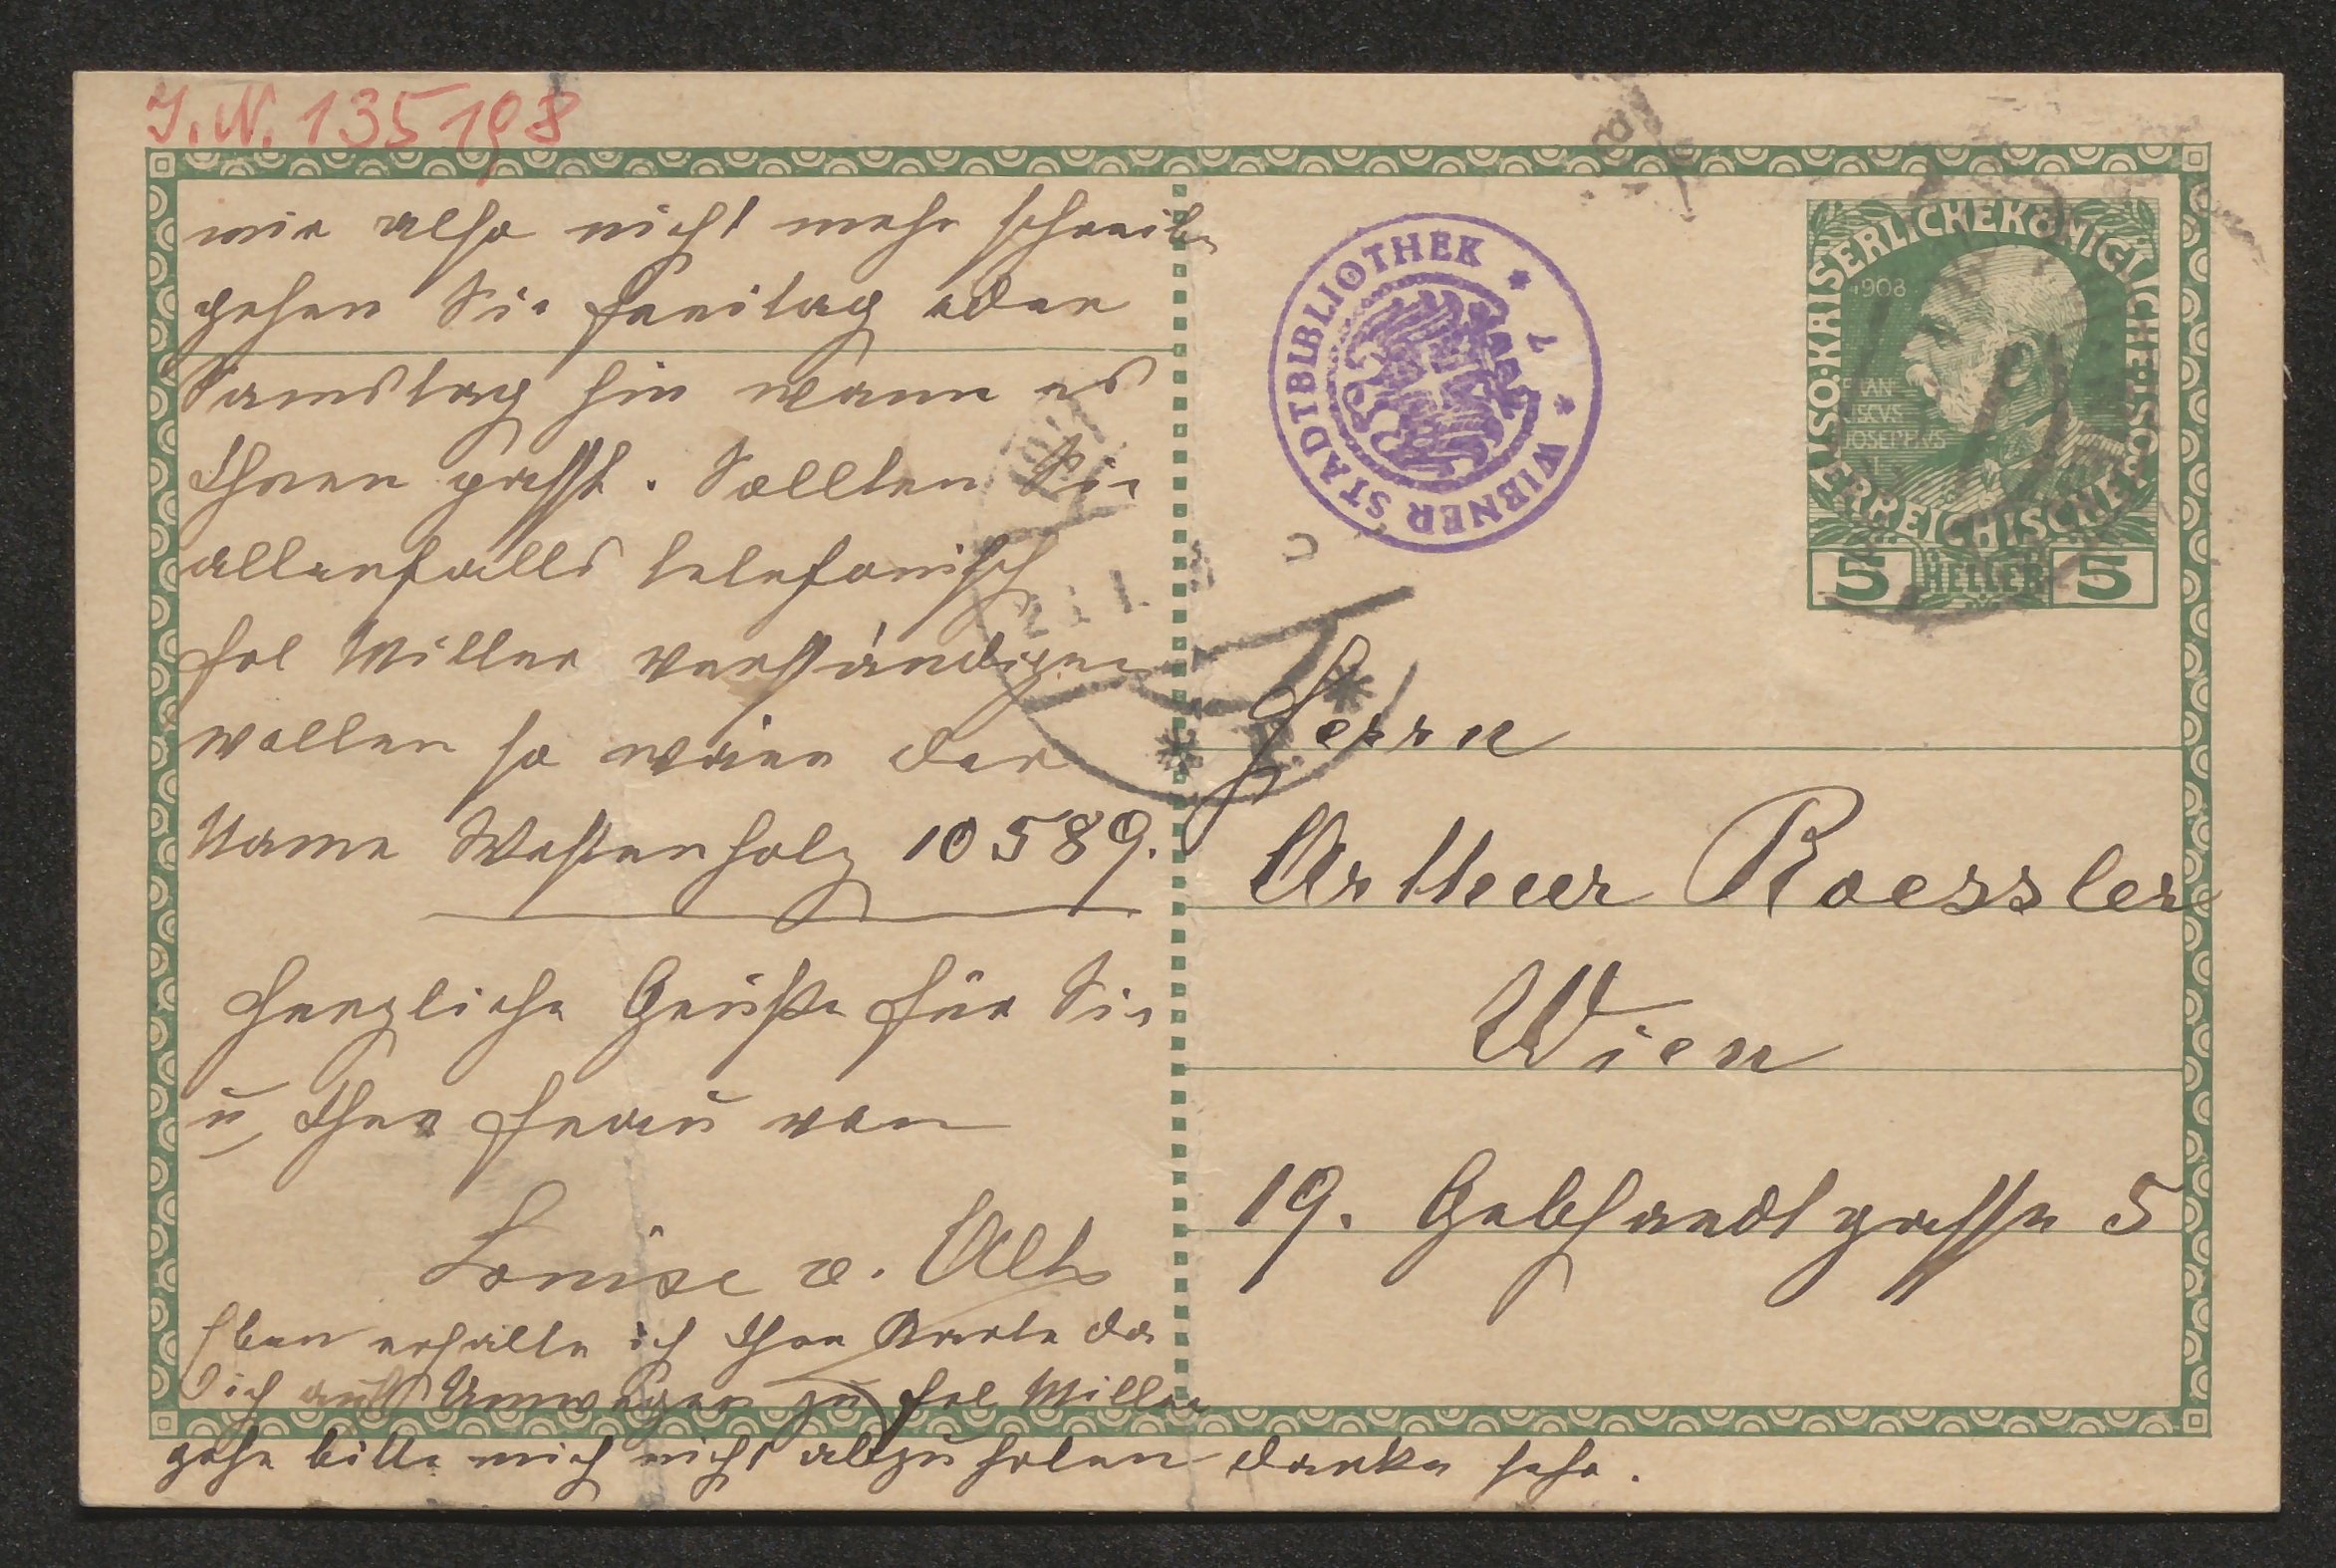 J.N. 135198
mir also nicht mehr schreiben
gehen Sie Freitag oder
Samstag hin wann es
Ihnen passt. Sollten Sie
allenfalls telefonisch
Frl Miller verständigen
wollen so wäre der
Name Westenholz 10589.
Herzliche Grüße für Sie
u Ihre Frau von
Louise v. Alt
Eben erhalte ich Ihre Karte da
ich auf Umwegen zu Frl Miller
gehe bitte mich nicht abzuholen danke sehr.
WIENER STADTBIBLIOTHEK
KAISERLICHE KÖNIGLICHE ÖSTERREICHISCHE POST
1908
FRANCISCVS JOSEPHVS I
5 HELLER 5
Herrn
Arthur Roessler
Wien
19. Gebhardtgasse 5